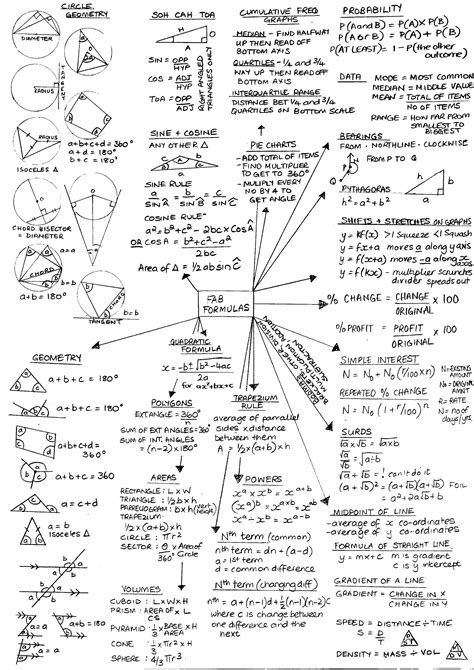 CIRCLE GEOMETRY
DIAMETER
TANGENT
RADIUS
RADIUS
ISOCELES Δ
a+b+c+d = 360°
a+d = 180°
b+c = 180°
CHORD BISECTOR
= DIAMETER
a=a
CHORD
a+b=180°
b=b
CHORD
TANGENT
SOH CAH TOA
H
O
A
SIN = OPP
HYP
COS = ADJ
HYP
TOA = OPP
ADJ
RIGHT ANGLED
TRIANGLES ONLY
SINE + COSINE
ANY OTHER Δ
SINE RULE
a/sin Â = b/sin B̂ = c/sin Ĉ
COSINE RULE
a² = b²+c² - 2bc x cos Â
OR cos A = b²+c²-a²
2bc
Area of Δ = 1/2 ab sin Ĉ
CUMULATIVE FREQ
GRAPHS
MEDIAN - FIND HALFWAY
UP THEN READ OFF
BOTTOM AXIS
QUARTILES - 1/4 and 3/4
WAY UP THEN READ OFF
BOTTOM AXIS
INTERQUARTILE RANGE
DISTANCE BET 1/4 and 3/4
QUARTILES ON BOTTOM SCALE
PIE CHARTS
- ADD TOTAL OF ITEMS
- FIND MULTIPLIER
TO GET TO 360°
- MULIPLY EVERY
NO BY 4 TO
GET ANGLE
PROBABILITY
P(A and B) = P(A) x P(B)
P(A or B) = P(A) + P(B)
P(AT LEAST) = 1 - P(the other
outcome)
DATA
MODE = MOST COMMON
MEDIAN = MIDDLE VALUE
MEAN = TOTAL OF ITEMS
NO OF ITEMS
RANGE = HOW FAR FROM
SMALLEST TO
BIGGEST
BEARINGS
FROM · NORTHLINE · CLOCKWISE
FROM P TO Q
PYTHAGORAS
h² = a² + b²
SHIFTS + STRETCHES ON GRAPHS
y = kf(x) >1 squeeze <1 squash
y = fx+a moves a along y axis
y = f(x+a) moves -a along x
axis
y = f(kx) - multiplier scrunches
divider spreads out
FAB
FORMULAS
% CHANGE = CHANGE x 100
ORIGINAL
% PROFIT = PROFIT x 100
ORIGINAL
SIMPLE INTEREST
N = N₀ + N₀ (r/100 x n)
REPEATED % CHANGE
N = N₀ (1 + r/100)ⁿ
N = EXISTING
AMOUNT
N₀ = ORIGINAL
AMNT
R = RATE
N = no of
days/yrs
SURDS
√a x √b = √a x b
√a/√b = √a÷b
√a + √b = ! can't do it
(a+√b)² = (a+√b)(a+√b) FOIL
= a²+2a√b+b
MIDPOINT OF LINE
- average of x co-ordinates
- average of y co-ordinates
FORMULA OF STRAIGHT LINE
y = mx + c m is gradient
c is y intercept
GRADIENT OF A LINE
GRADIENT = CHANGE IN X
CHANGE IN Y
SPEED = DISTANCE ÷ TIME
S = D
T
DENSITY = MASS ÷ VOL
GEOMETRY
a+b+c = 180°
a+b+c = 180°
a+b+c+d =
360°
a+b+c = 360
a = c+d
a = b
isoceles Δ
QUADRATIC
FORMULA
x = -b±√b²-4ac
2a
for ax²+bx+c
POLYGONS
EXT ANGLE = 360°
n
SUM OF EXT ANGLES = 360°
SUM OF INT. ANGLES
= (n-2) x 180°
AREAS
RECTANGLE: L x W
TRIANGLE: 1/2 b x h
PARELLOGRAM: b x h (vert height)
TRAPEZIUM:
1/2 x (a+b) x h
CIRCLE: πr²
SECTOR: θ x Area of
360° Circle
VOLUMES
CUBOID: L x W x H
PRISM: AREA OF CS x L
PYRAMID: 1/3 x BASE AREA x H
CONE: 1/3 x πr² x H
SPHERE: 4/3 πr³
TRAPEZIUM
RULE
average of parrallel
sides x distance
between them
A = 1/2 x (a+b) x h
BRACKETS, OTHER, DIVISION,
MULTIPLICATION, ADDITION,
SUBTRACTION
POWERS
xᵃ x xᵇ = xᵃ⁺ᵇ
(xᵃ)ᵇ = xᵃˣᵇ = xᵃᵇ
xᵃ ÷ xᵇ = xᵃ⁻ᵇ
Nth term (common)
nth term = dn + (a-d)
a = 1st term
d = common difference
Nth term (changing diff)
nth = a+(n-1)d + 1/2(n-1)(n-2)c
where c is change between
one difference and the
next